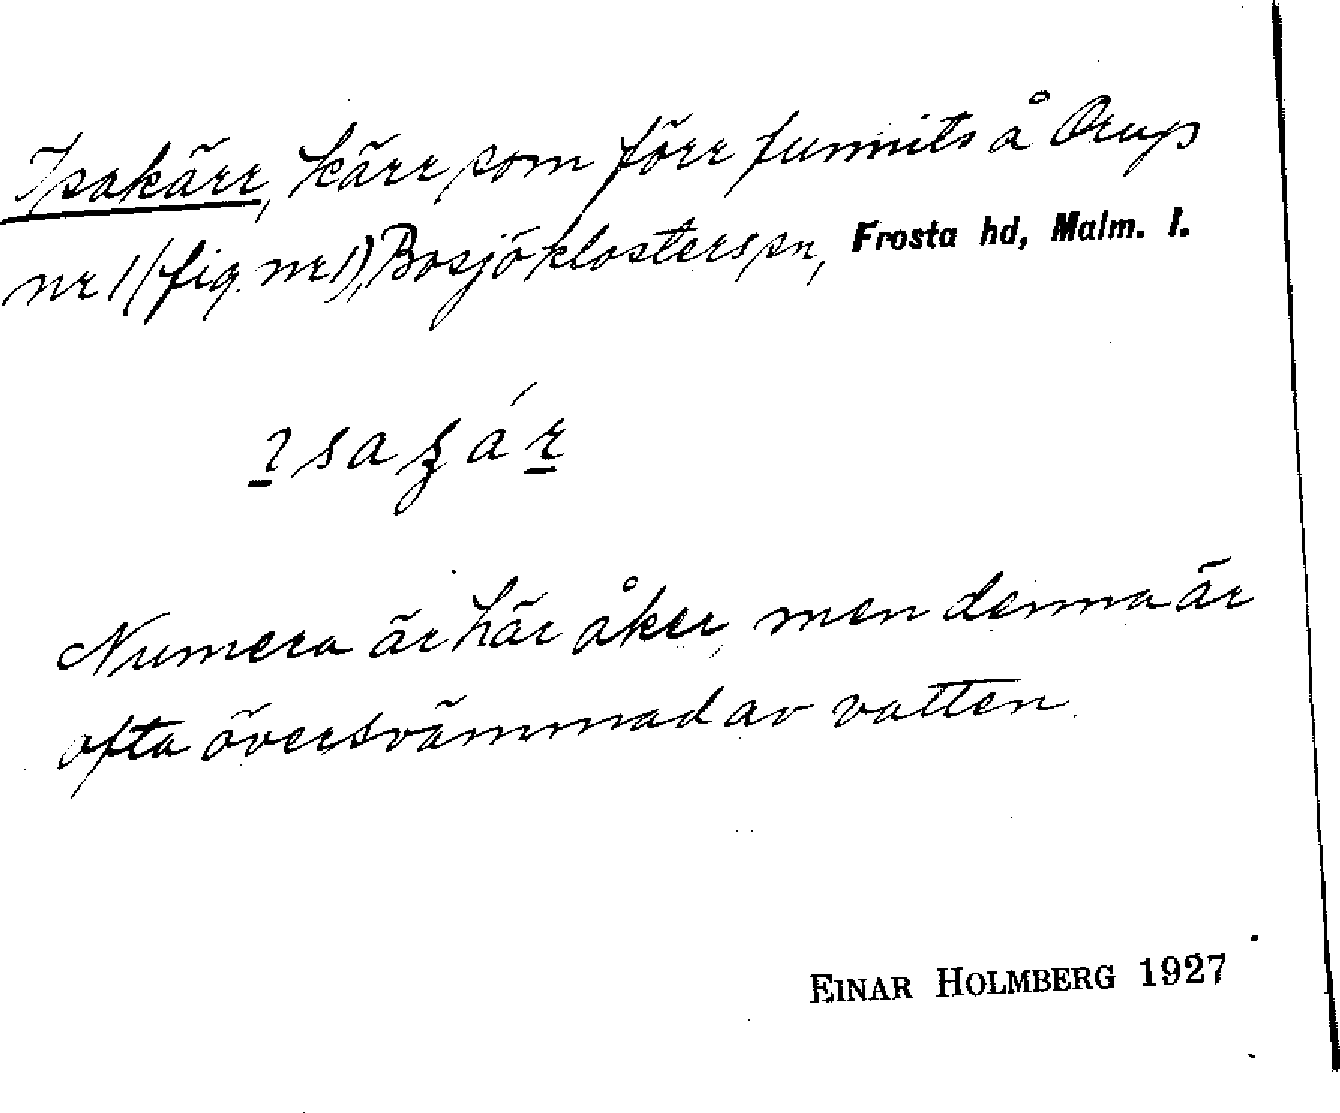 Isakärr, kärr som förr funnits å Orup
nr 1 (fig. nr 1), Bosjöklosters sn, Frosta hd, Malm. l.
Numera är här åker, men denna är
ofta översvämmad av vatten.
EINAR HOLMBERG 1927